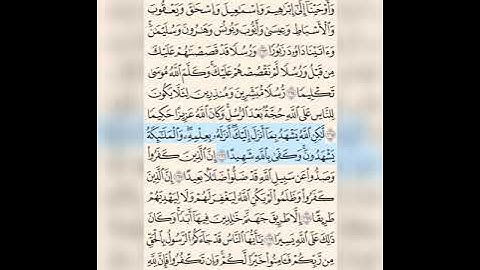 وَأَوْحَيْنَا إِلَىٰ إِبْرَاهِيمَ وَإِسْمَاعِيلَ وَإِسْحَاقَ وَيَعْقُوبَ
وَالْأَسْبَاطِ وَعِيسَىٰ وَأَيُّوبَ وَيُونُسَ وَهَارُونَ وَسُلَيْمَانَ
وَآتَيْنَا دَاوُودَ زَبُورًا وَرُسُلًا قَدْ قَصَصْنَاهُمْ عَلَيْكَ
مِن قَبْلُ وَرُسُلًا لَّمْ نَقْصُصْهُمْ عَلَيْكَ وَكَلَّمَ اللَّهُ مُوسَىٰ
تَكْلِيمًا رُّسُلًا مُّبَشِّرِينَ وَمُنذِرِينَ لِئَلَّا يَكُونَ
لِلنَّاسِ عَلَى اللَّهِ حُجَّةٌ بَعْدَ الرُّسُلِ وَكَانَ اللَّهُ عَزِيزًا حَكِيمًا
لَّٰكِنِ اللَّهُ يَشْهَدُ بِمَا أَنزَلَ إِلَيْكَ أَنزَلَهُ بِعِلْمِهِ وَالْمَلَائِكَةُ
يَشْهَدُونَ وَكَفَىٰ بِاللَّهِ شَهِيدًا إِنَّ الَّذِينَ كَفَرُوا
وَصَدُّوا عَن سَبِيلِ اللَّهِ قَدْ ضَلُّوا ضَلَالًا بَعِيدًا إِنَّ الَّذِينَ
كَفَرُوا وَظَلَمُوا لَمْ يَكُنِ اللَّهُ لِيَغْفِرَ لَهُمْ وَلَا لِيَهْدِيَهُمْ
طَرِيقًا إِلَّا طَرِيقَ جَهَنَّمَ خَالِدِينَ فِيهَا أَبَدًا وَكَانَ
ذَٰلِكَ عَلَى اللَّهِ يَسِيرًا يَا أَيُّهَا النَّاسُ قَدْ جَاءَكُمُ الرَّسُولُ بِالْحَقِّ
مِن رَّبِّكُمْ فَآمِنُوا خَيْرًا لَّكُمْ وَإِن تَكْفُرُوا فَإِنَّ لِلَّهِ